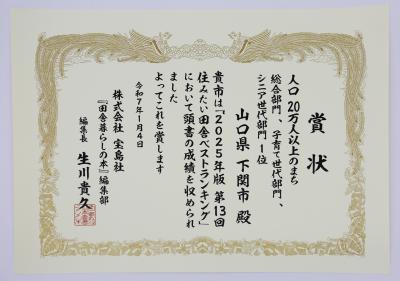 賞状
人口20万人以上のまち
総合部門、子育て世代部門、
シニア世代部門1位
山口県 下関市 殿
貴市は『2025年版 第13回
住みたい田舎ベストランキング』
において頭書の成績を収められ
ました
よってこれを賞します
令和7年1月4日
株式会社 宝島社
『田舎暮らしの本』編集部
編集長 生川貴久